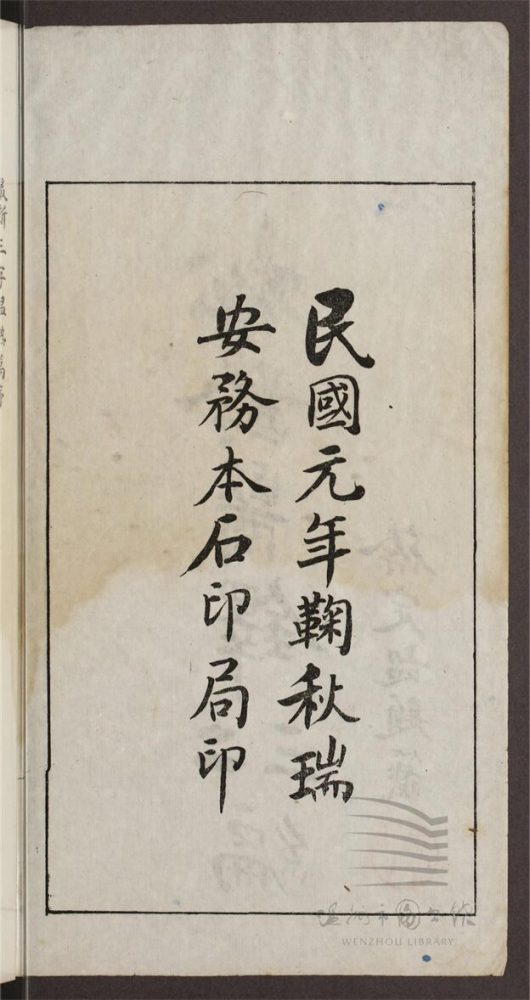 民國元年鞠秋瑞
安務本石印局印
温州市图书馆
WENZHOU LIBRARY